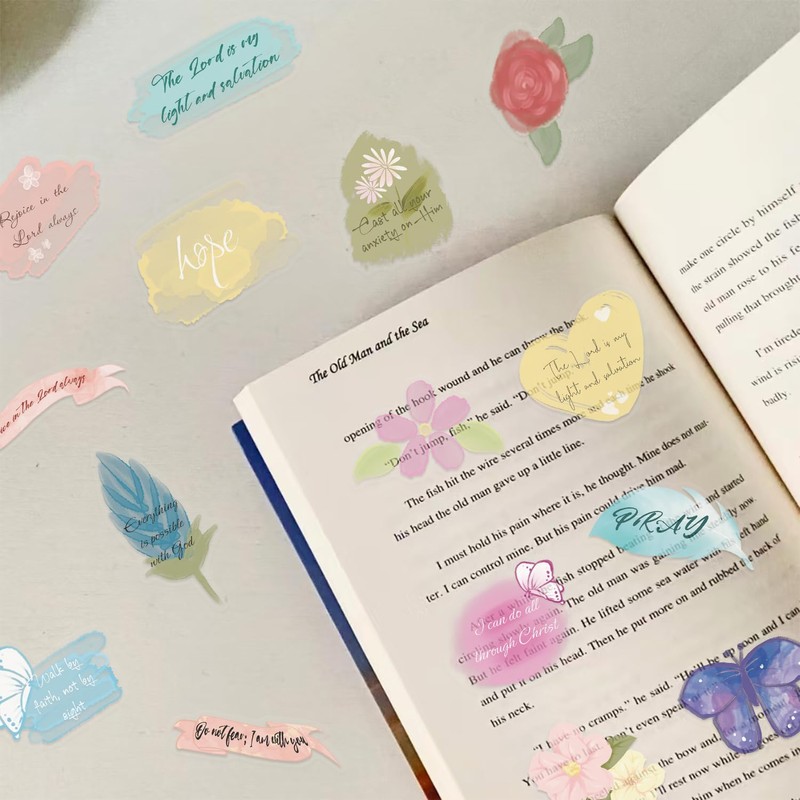 The Lord is my
light and salvation
Rejoice in the
Lord always
hope
Cast all your
anxiety on Him
in the Lord always
Everything
is possible
with God
Walk by
faith, not by
sight
Do not fear; I am with you
The Old Man and the Sea
opening of the hook wound and he can throw the hook
"Don't jump, fish," he said. "Don't jump
time he shook
The Lord is my
light and salvation
The fish hit the wire several times more and each
his head the old man gave up a little line.
I must hold his pain where it is, he thought. Mine does not mat-
ter. I can control mine. But his pain could drive him mad.
PRAY
After a while fish stopped beating and started
circling slowly again. The old man was gaining steadily now.
But he felt faint again. He lifted some sea water with his left hand
and put it on his head. Then he put more on and rubbed the back of
his neck.
I can do all
through Christ
"I have no cramps." he said. "He'll be up soon and I can
You have to last. Don't even speak
the bow and
"I'll rest now while he goes
him when he comes in
make one circle by himself
the strain showed the fish
old man rose to his fe
pulling that brought
I'm tired
wind is risi
badly.